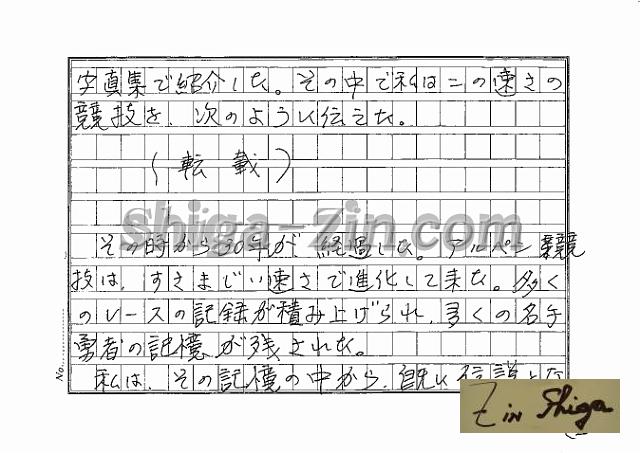 写真集で紹介した。その中で私はこの速さの
競技を、次のように伝えた。
(転載)
Shiga-Zin.com
その時から30年が経過した。アルペン競
技は、すさまじい速さで進化して来た。多く
のレースの記録が積み上げられ、多くの名手
勇者の記憶が残された。
私は、その記憶の中から、既に伝説とな
No.
Z in Shiga